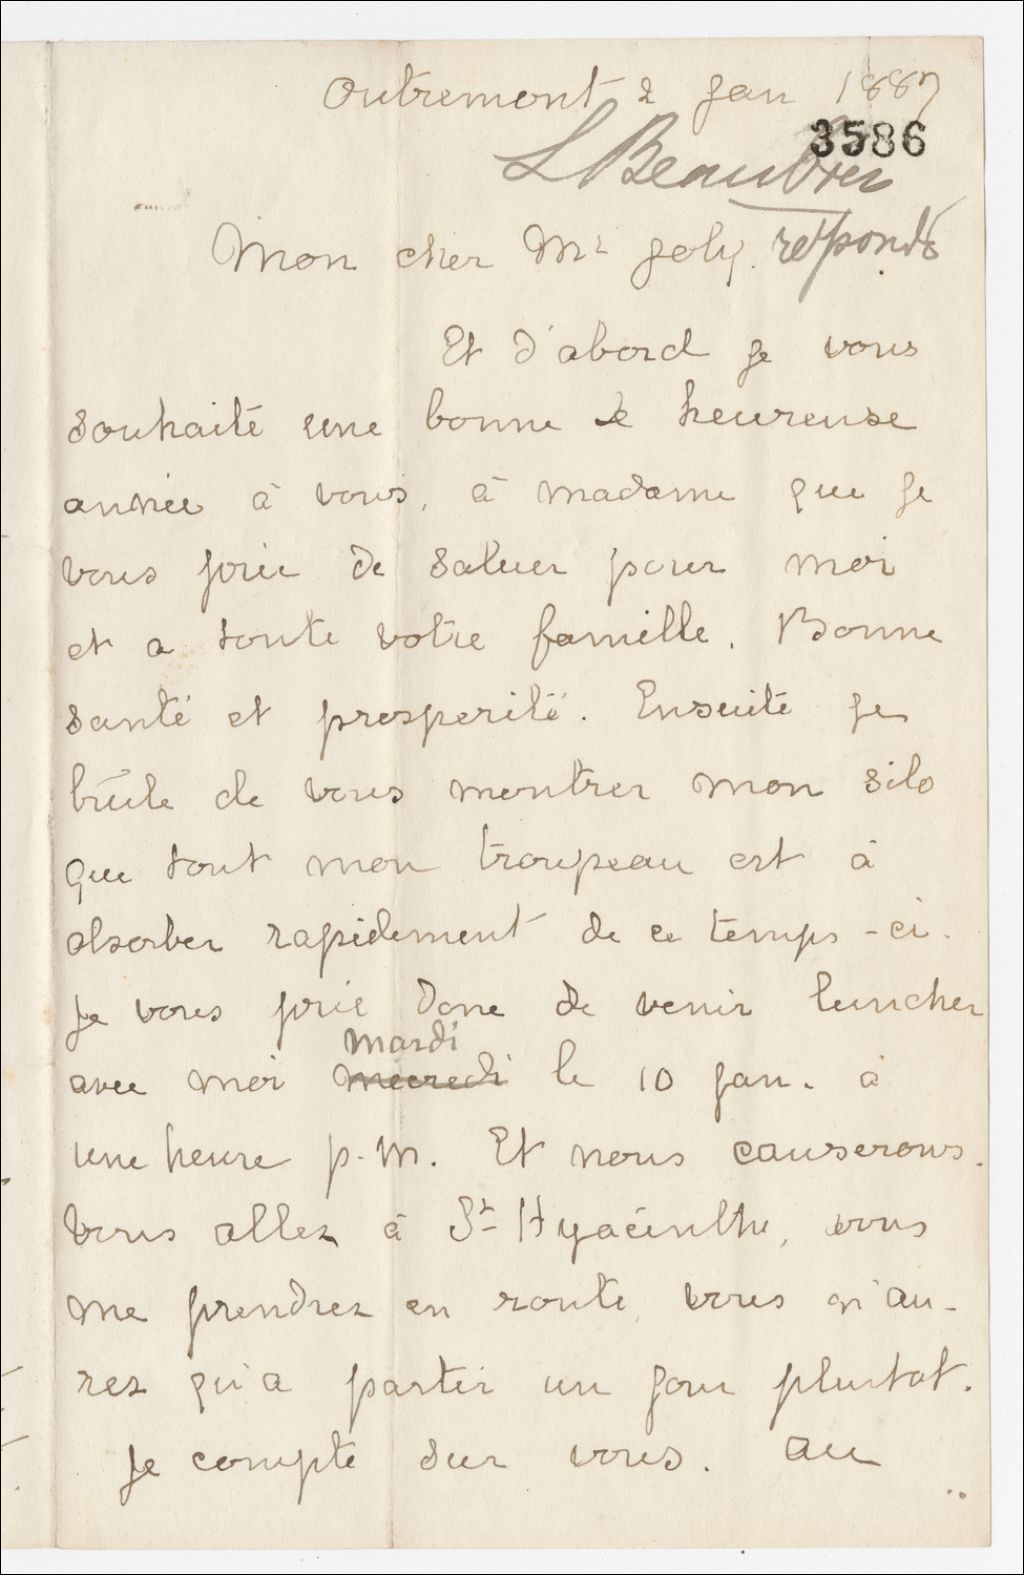 Outremont 2 Jan 1887
3586
L Beaubien
Mon cher Mr Joly. répondu
Et d'abord je vous
souhaite une bonne & heureuse
année à vous, à madame que je
vous prie de saluer pour moi
et a toute votre famille. Bonne
santé et prosperité. Ensuite je
brûle de vous montrer mon silo
que tout mon troupeau est à
absorber rapidement de ce temps-ci.
Je vous prie donc de venir luncher
mardi
avec moi mecredi le 10 jan. à
une heure p.m. Et nous causerons.
Vous allez à St Hyacinthe, vous
me prendrez en route, vous n'au-
rez qu'a partir un jour plutot.
Je compte sur vous. Au